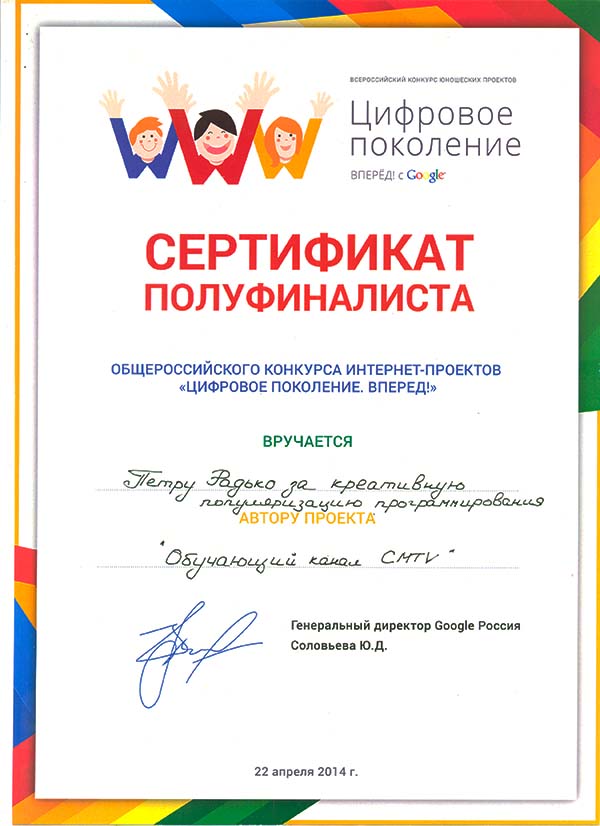 ВСЕРОССИЙСКИЙ КОНКУРС ЮНОШЕСКИХ ПРОЕКТОВ
Цифровое
поколение
ВПЕРЁД! с Google
СЕРТИФИКАТ
ПОЛУФИНАЛИСТА
ОБЩЕРОССИЙСКОГО КОНКУРСА ИНТЕРНЕТ-ПРОЕКТОВ
«ЦИФРОВОЕ ПОКОЛЕНИЕ. ВПЕРЕД!»
ВРУЧАЕТСЯ
Петру Радько за креативную
популяризацию программирования
АВТОРУ ПРОЕКТА
"Обучающий канал CMTV"
Генеральный директор Google Россия
Соловьева Ю.Д.
22 апреля 2014 г.